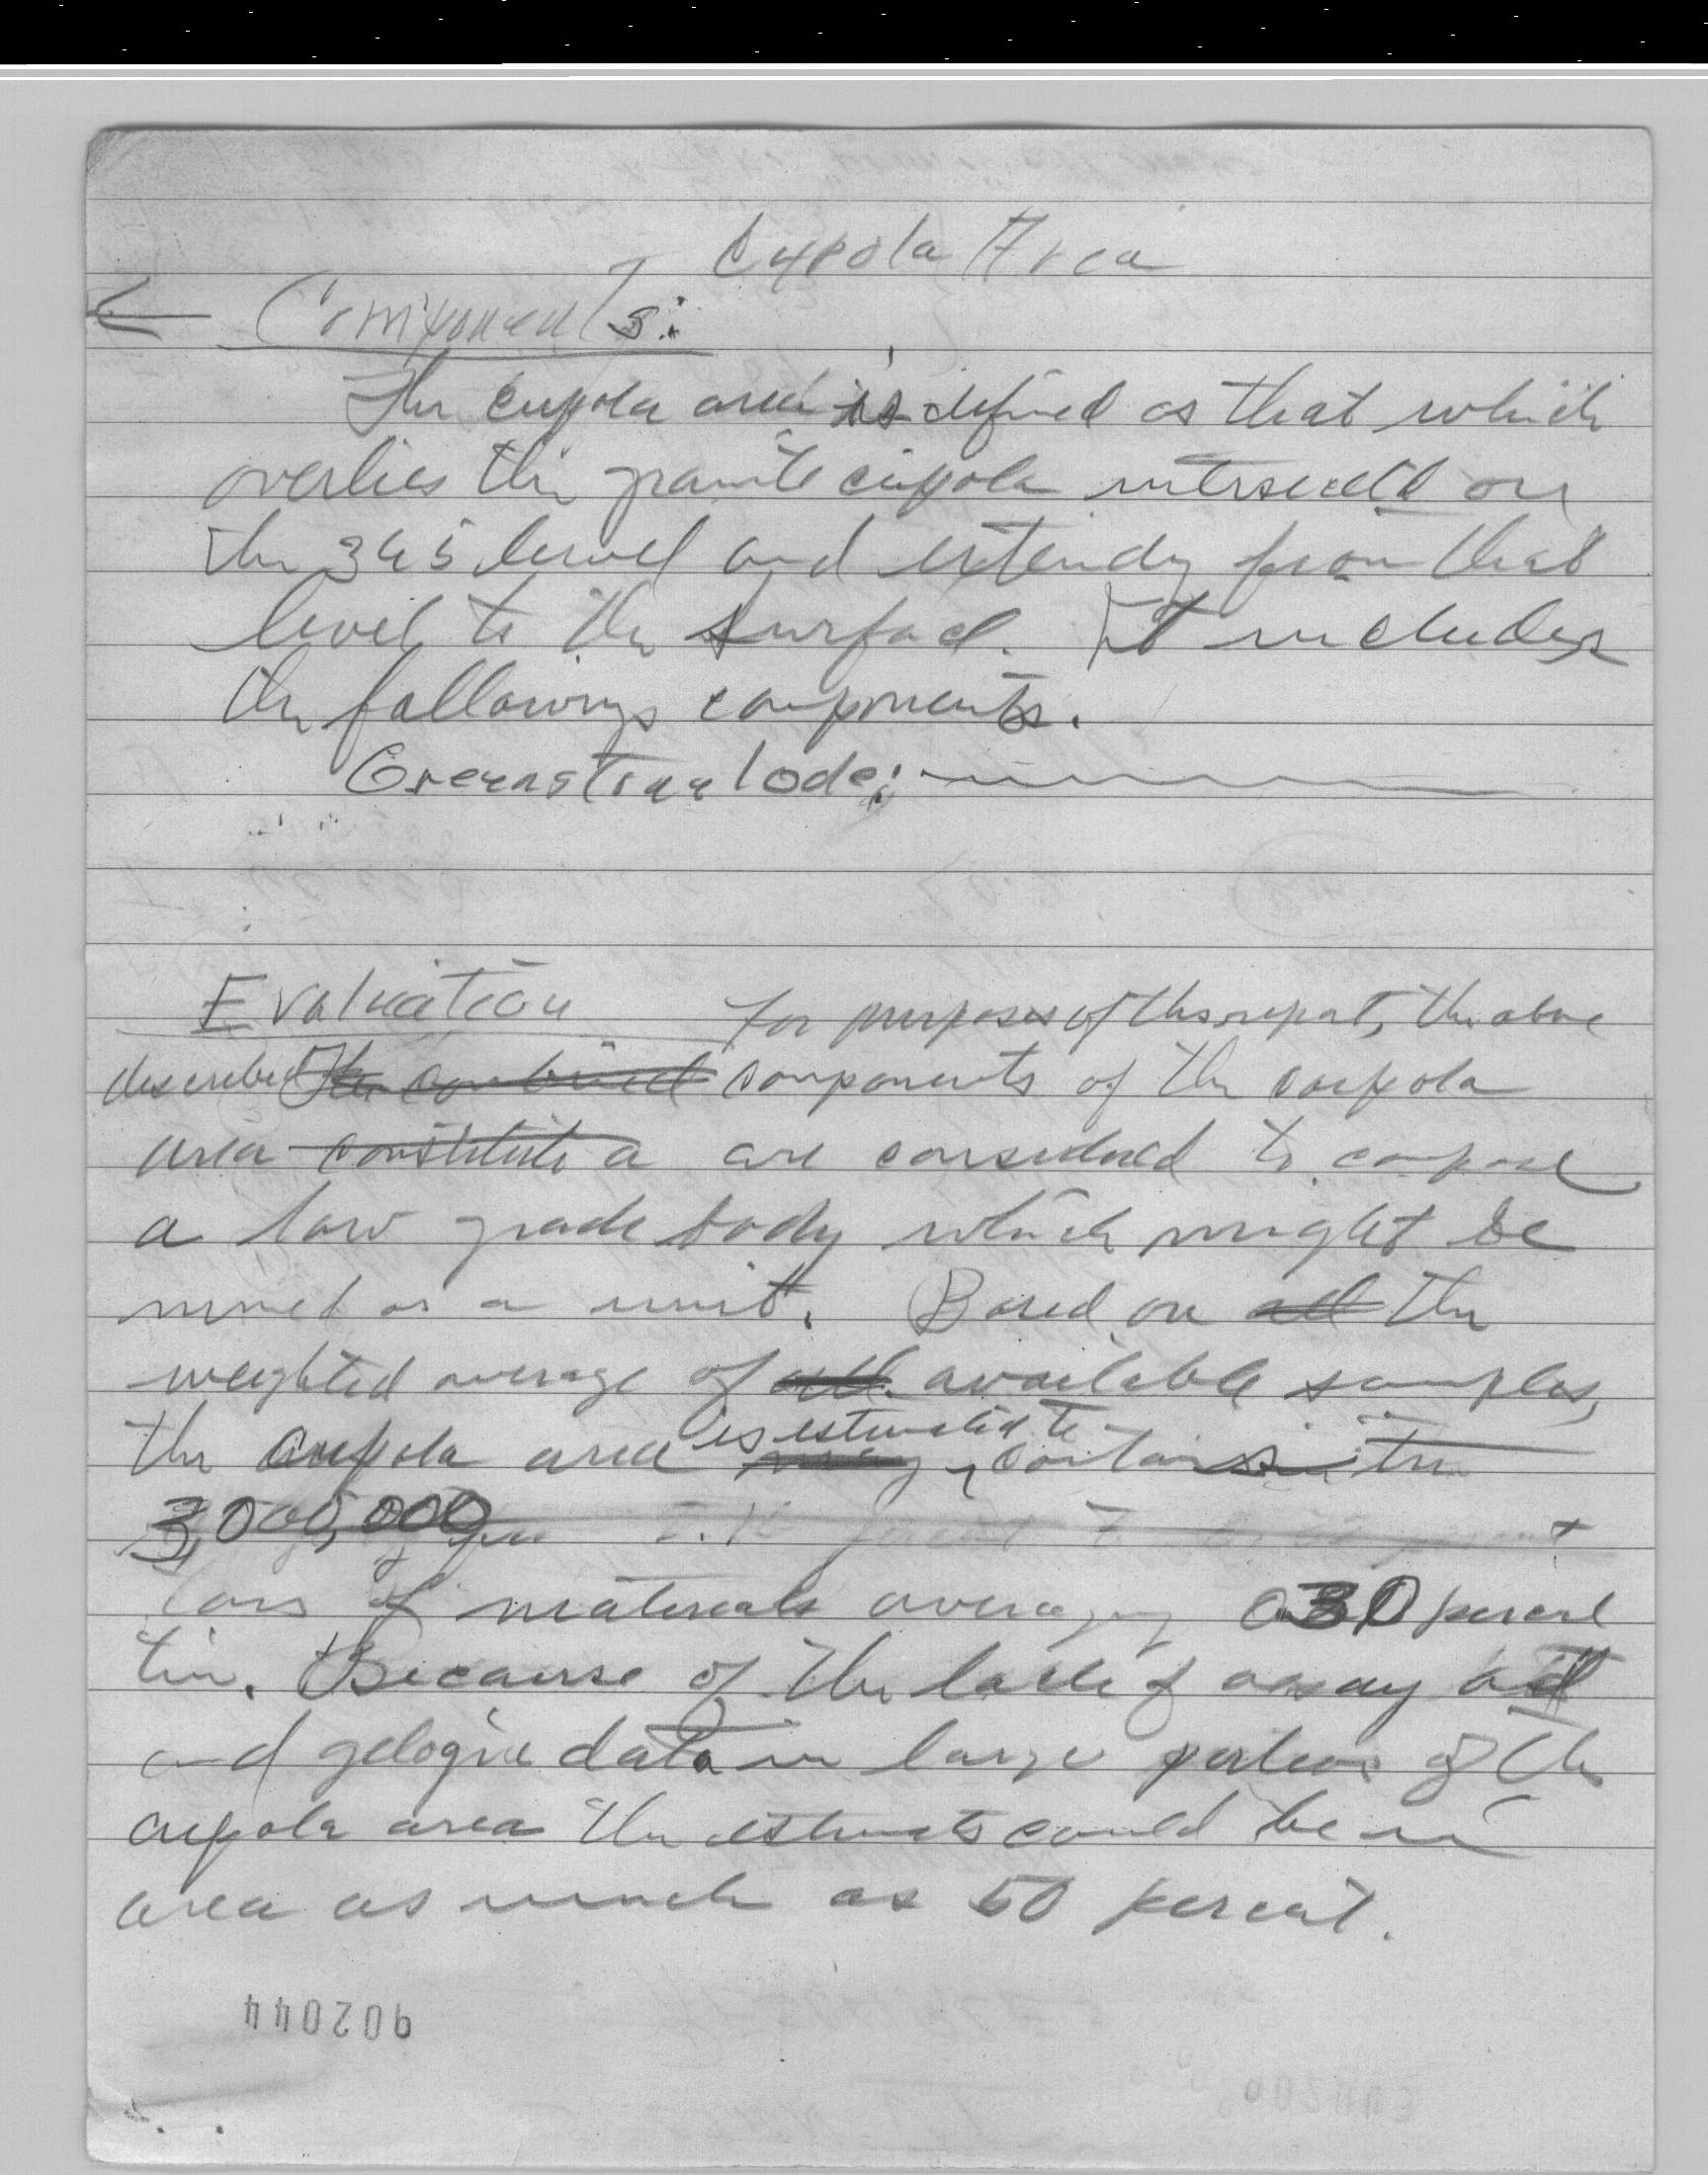 Cupola Area
Components:
The cupola area is defined as that which
overlies the granite cupola intersected on
the 365 level and extends from that
level to the surface. It includes
the following components.
Greenstone lode:
Evaluation For purposes of this report, the above
described the combined components of the cupola
area constitute a are considered to compose
a low grade body which might be
mined as a unit. Based on all the
weighted average of all available samples,
is estimated to
the cupola area may contain
3,000,000
tons of materials averaging 0.30 percent
tin. Because of the lack of assay
and geologic data in large portions of the
cupola area the estimate could be in
area as much as 50 percent.
902044